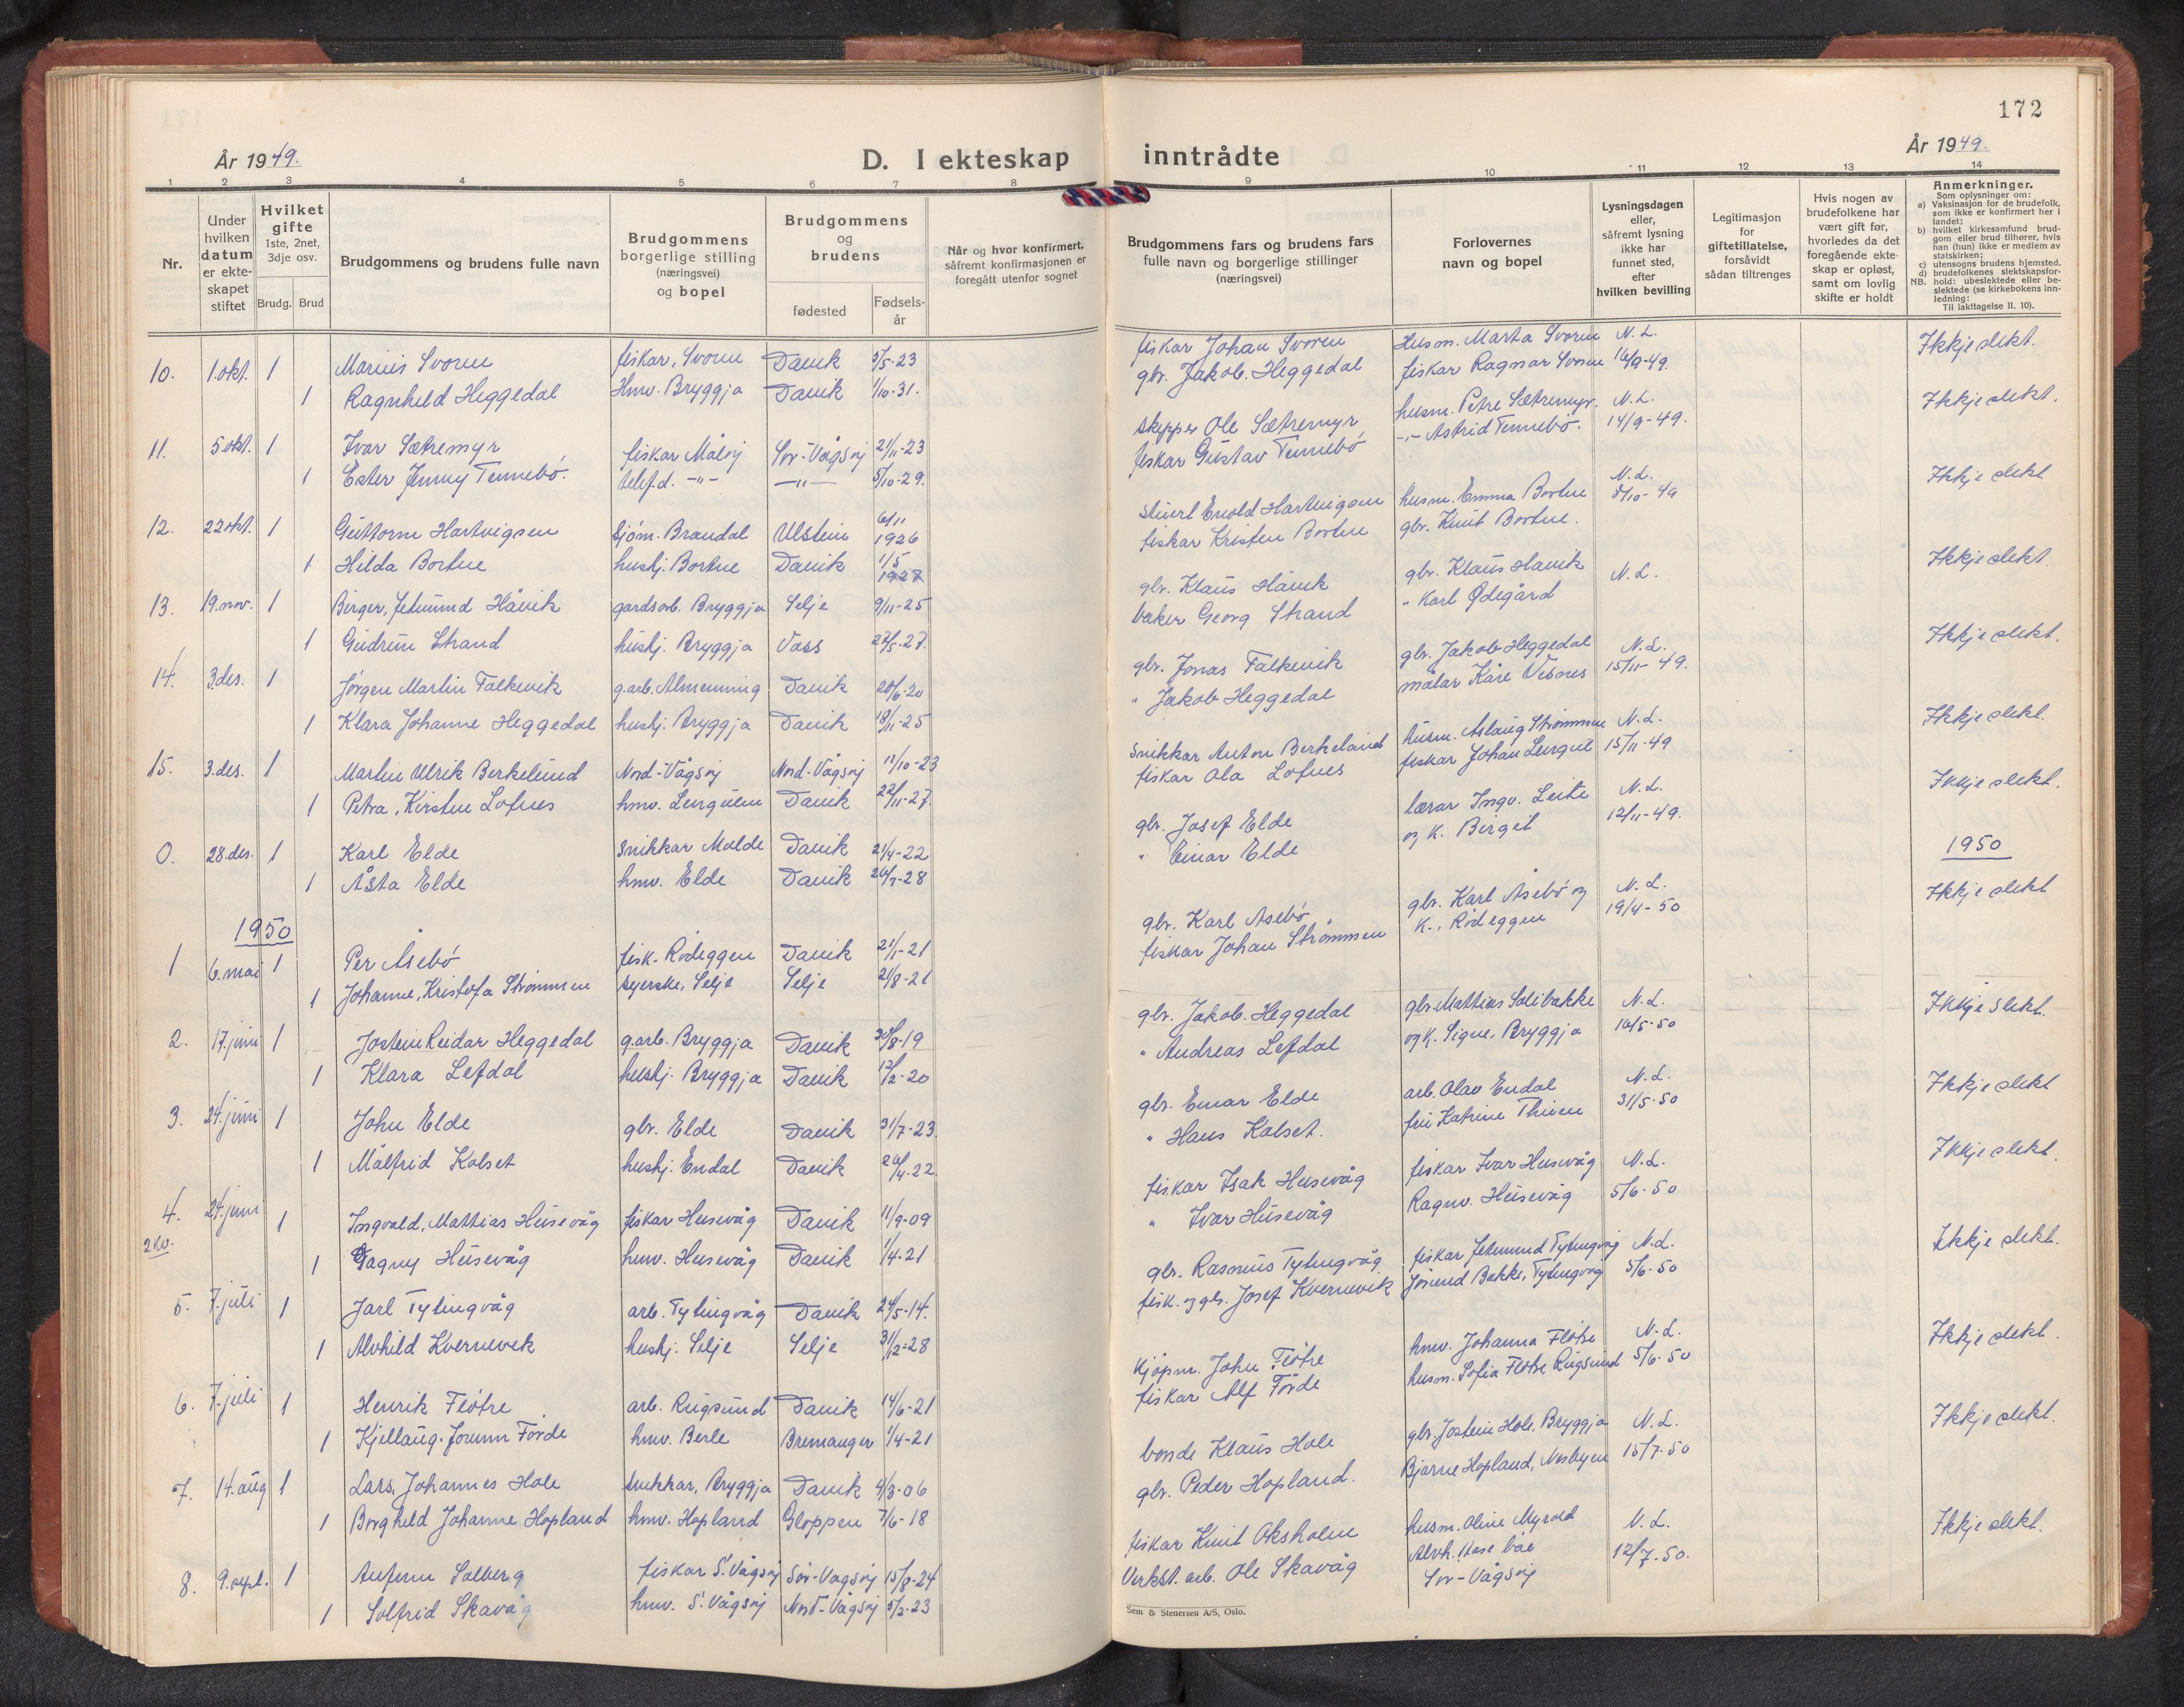 172
År 1949.
D. I ekteskap inntrådte
År 1949.
1 2 3 4 5 6 7 8 9 10 11 12 13 14
Nr.
Under hvilken datum er ekteskapet stiftet
Hvilket gifte 1ste, 2net, 3dje osv.
Brudg. Brud
Brudgommens og brudens fulle navn
Brudgommens borgerlige stilling (næringsvei) og bopel
Brudgommens og brudens
fødested
Fødselsår
Når og hvor konfirmert, såfremt konfirmasjonen er foregått utenfor sognet
Brudgommens fars og brudens fars fulle navn og borgerlige stillinger (næringsvei)
Forlovernes navn og bopel
Lysningsdagen eller, såfremt lysning ikke har funnet sted, efter hvilken bevilling
Legitimasjon for giftetillatelse, forsåvidt sådan tiltrenges
Hvis nogen av brudefolkene har vært gift før, hvorledes da det foregående ekteskap er opløst, samt om lovlig skifte er holdt
Anmerkninger.
Som oplysninger om:
a) Vaksinasjon for de brudefolk, som ikke er konfirmert her i landet;
b) hvilket kirkesamfund brudgom eller brud tilhører, hvis han (hun) ikke er medlem av statskirken;
c) utensogns brudens hjemsted.
d) brudefolkenes slektskapsforhold: ubeslektede eller beslektede (se kirkebokens innledning:
NB.
Til iakttagelse II. 10).
10. 1.okt. 1 Marius Svoren fiskar, Svoren Davik 3/5-23 fiskar Johan Svoren Husm. Marta Svoren N.L. Ikkje slekt.
1 Ragnhild Heggedal Hmv. Bryggja Davik 1/10-31. gbr. Jakob Heggedal fiskar Ragnar Svoren 16/9-49.
11. 5.okt. 1 Ivar Sætremyr fiskar Måløy Sør-Vågsøy 21/11-23 skipper Ole Sætremyr husm. Petre Sætremyr. N.L. Ikkje slekt.
1 Ester Jenny Tennebø. telef.d. -"- -"- 5/10-29. fiskar Gustav Tennebø -"- Astrid Tennebø. 14/9-49.
12. 22okt. 1 Guttorm Hartvigsen sjøm. Brandal Ulstein 6/11 1926 stuert Enold Hartvigsen husm. Emma Bortne N.L. 8/10-49 Ikkje slekt
1 Hilda Bortne hushj. Bortne Davik 1/5 1927 fiskar Kristen Bortne gbr. Knut Bortne.
13. 19.nov. 1 Birger, Jetmund Håvik gardsarb. Bryggja Selje 9/11-25 gbr. Klaus Håvik gbr. Klaus Håvik N.L. Ikkje slekt.
1 Gudrun Strand hushj. Bryggja Voss 27/5-27. baker Georg Strand " Karl Ødegård
14. 3.des. 1 Jørgen Martin Falkevik g.arb. Almenning Davik 20/6-20 gbr. Jonas Falkevik gbr. Jakob Heggedal N.L. Ikkje slekt.
1 Klara Johanne Heggedal hushj. Bryggja Davik 18/11-25 " Jakob Heggedal målar Kåre Visnes 15/11-49.
15. 3.des. 1 Martin Ulrik Berkelund Nord-Vågsøy Nord-Vågsøy 11/10-23 snikkar Anton Berkeland husm. Aslaug Strømmen N.L. Ikkje slekt.
1 Petra, Kirsten Lofnes hmv. Leirgulen Davik 22/11-27. fiskar Ola Lofnes fiskar Johan Leirgul 15/11-49
0. 28.des. 1 Karl Elde snikkar Molde Davik 21/4-22 gbr. Josef Elde lærar Ingv. Leite N.L. Ikkje slekt.
1 Åsta Elde hmv. Elde Davik 26/7-28 " Einar Elde og k. Birgit 12/11-49.
1950 1950
1 6.mai 1 Per Åsebø fisk. Rødeggen Davik 21/1-21 gbr. Karl Åsebø gbr. Karl Åsebø og N.L. Ikkje slekt
1 Johanne, Kristofa Strømmen syerske, Selje Selje 21/8-21 fiskar Johan Strømmen k., Rødeggen 19/4-50
2. 17.juni 1 Jostein Reidar Heggedal g.arb. Bryggja Davik 30/8-19 gbr. Jakob Heggedal gbr. Mattias Solibakke N.L. Ikkje slekt.
1 Klara Lefdal hushj. Bryggja Davik 12/2-20 " Andreas Lefdal og k. Signe, Bryggja 16/5-50
3. 24.juni 1 John Elde gbr. Elde Davik 31/7-23. gbr. Einar Elde arb. Olav Endal N.L. Ikkje slekt
1 Målfrid Kolset hushj. Endal Davik 26/4-22 " Hans Kolset. fru Katrine Thinen 31/5-50
4. 2 kv. 24.juni 1 Ingvald, Mattias Husevåg fiskar Husevåg Davik 11/9-09 fiskar Isak Husevåg fiskar Ivar Husevåg N.L. Ikkje slekt.
1 Dagny Husevåg hmv. Husevåg Davik 1/4-21 " Ivar Husevåg Ragnv. Husevåg 5/6-50
5. 7.juli 1 Jarl Tytingvåg arb. Tytingvåg Davik 24/5-14. gbr. Rasmus Tytingvåg fiskar Jetmund Tytingvåg N.L. Ikkje slekt.
1 Alvhild Kvernevik hushj. Selje Selje 31/2-28 fisk. og gbr. Josef Kvernevik Jørund Bakke, Tytingvåg 5/6-50
6. 7.juli 1 Henrik Fløtre arb. Rugsund Davik 14/6-21 kjøpm. John Fløtre hmv. Johanna Fløtre N.L. Ikkje slekt.
1 Kjellaug Jorunn Førde hmv. Berle Bremanger 1/4-21 fiskar Alf Førde husm. Sofia Fløtre, Rugsund 5/6-50
7. 14.aug 1 Lars, Johannes Hole snikkar, Bryggja Davik 4/3-06 bonde Klaus Hole gbr. Jostein Hole, Bryggja N.L. Ikkje slekt.
1 Borghild Johanne Hopland hmv. Hopland Gloppen 7/6-18 gbr. Peder Hopland. Bjarne Hopland, Nesbyen 15/7-50
8. 9.sept. 1 Solberg fiskar S. Vågsøy Sør-Vågsøy 15/8-24 fiskar Knut Oksholm husm. Oline Myrold N.L. Ikkje slekt.
1 Solfrid Skavåg hmv. S. Vågsøy Nord-Vågsøy 5/2-23 Verkst. arb. Ole Skavåg Sør-Vågsøy 12/7-50.
Sem & Stenersen A/S, Oslo.